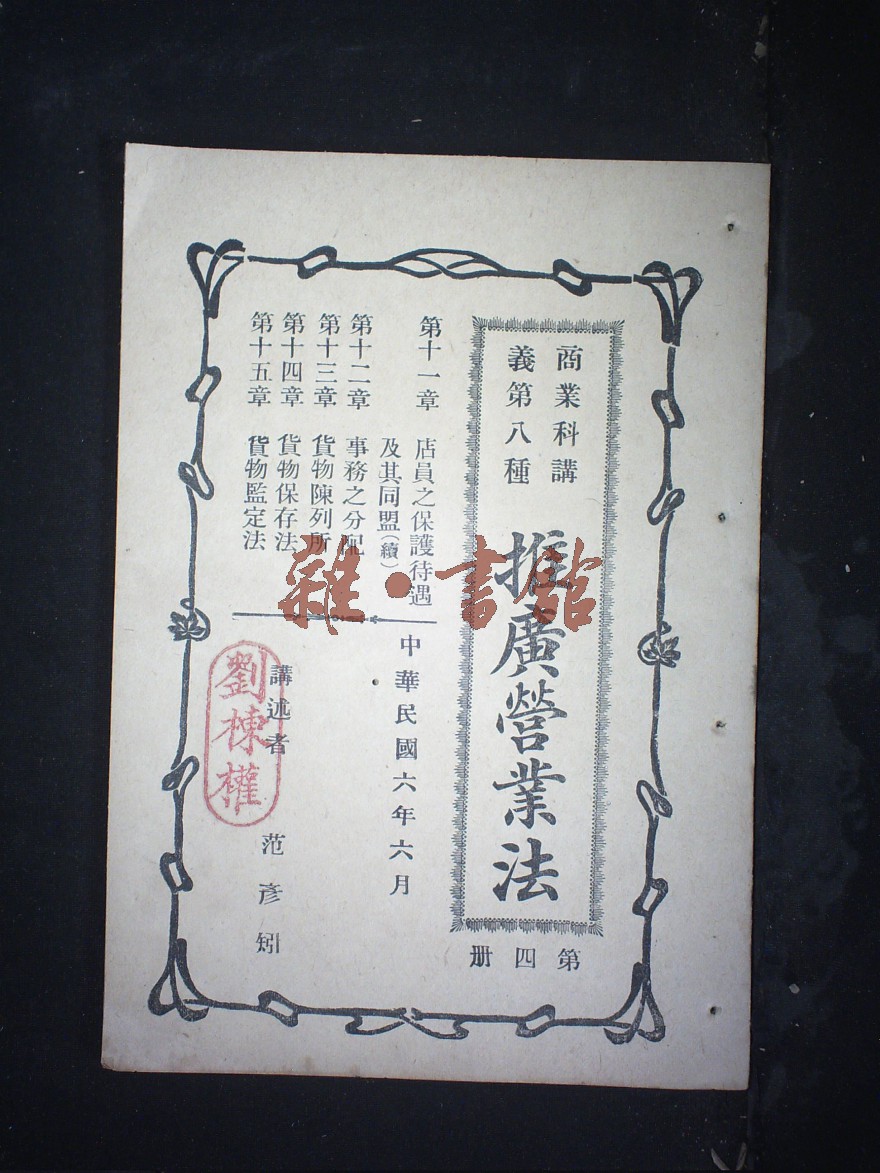 商業科講
義第八種
推廣營業法
第四册
第十一章 店員之保護待遇
及其同盟(續)
第十二章 事務之分配
第十三章 貨物陳列所
第十四章 貨物保存法
第十五章 貨物監定法
中華民國六年六月
講述者 范彥矧
劉棟權
雜·書館